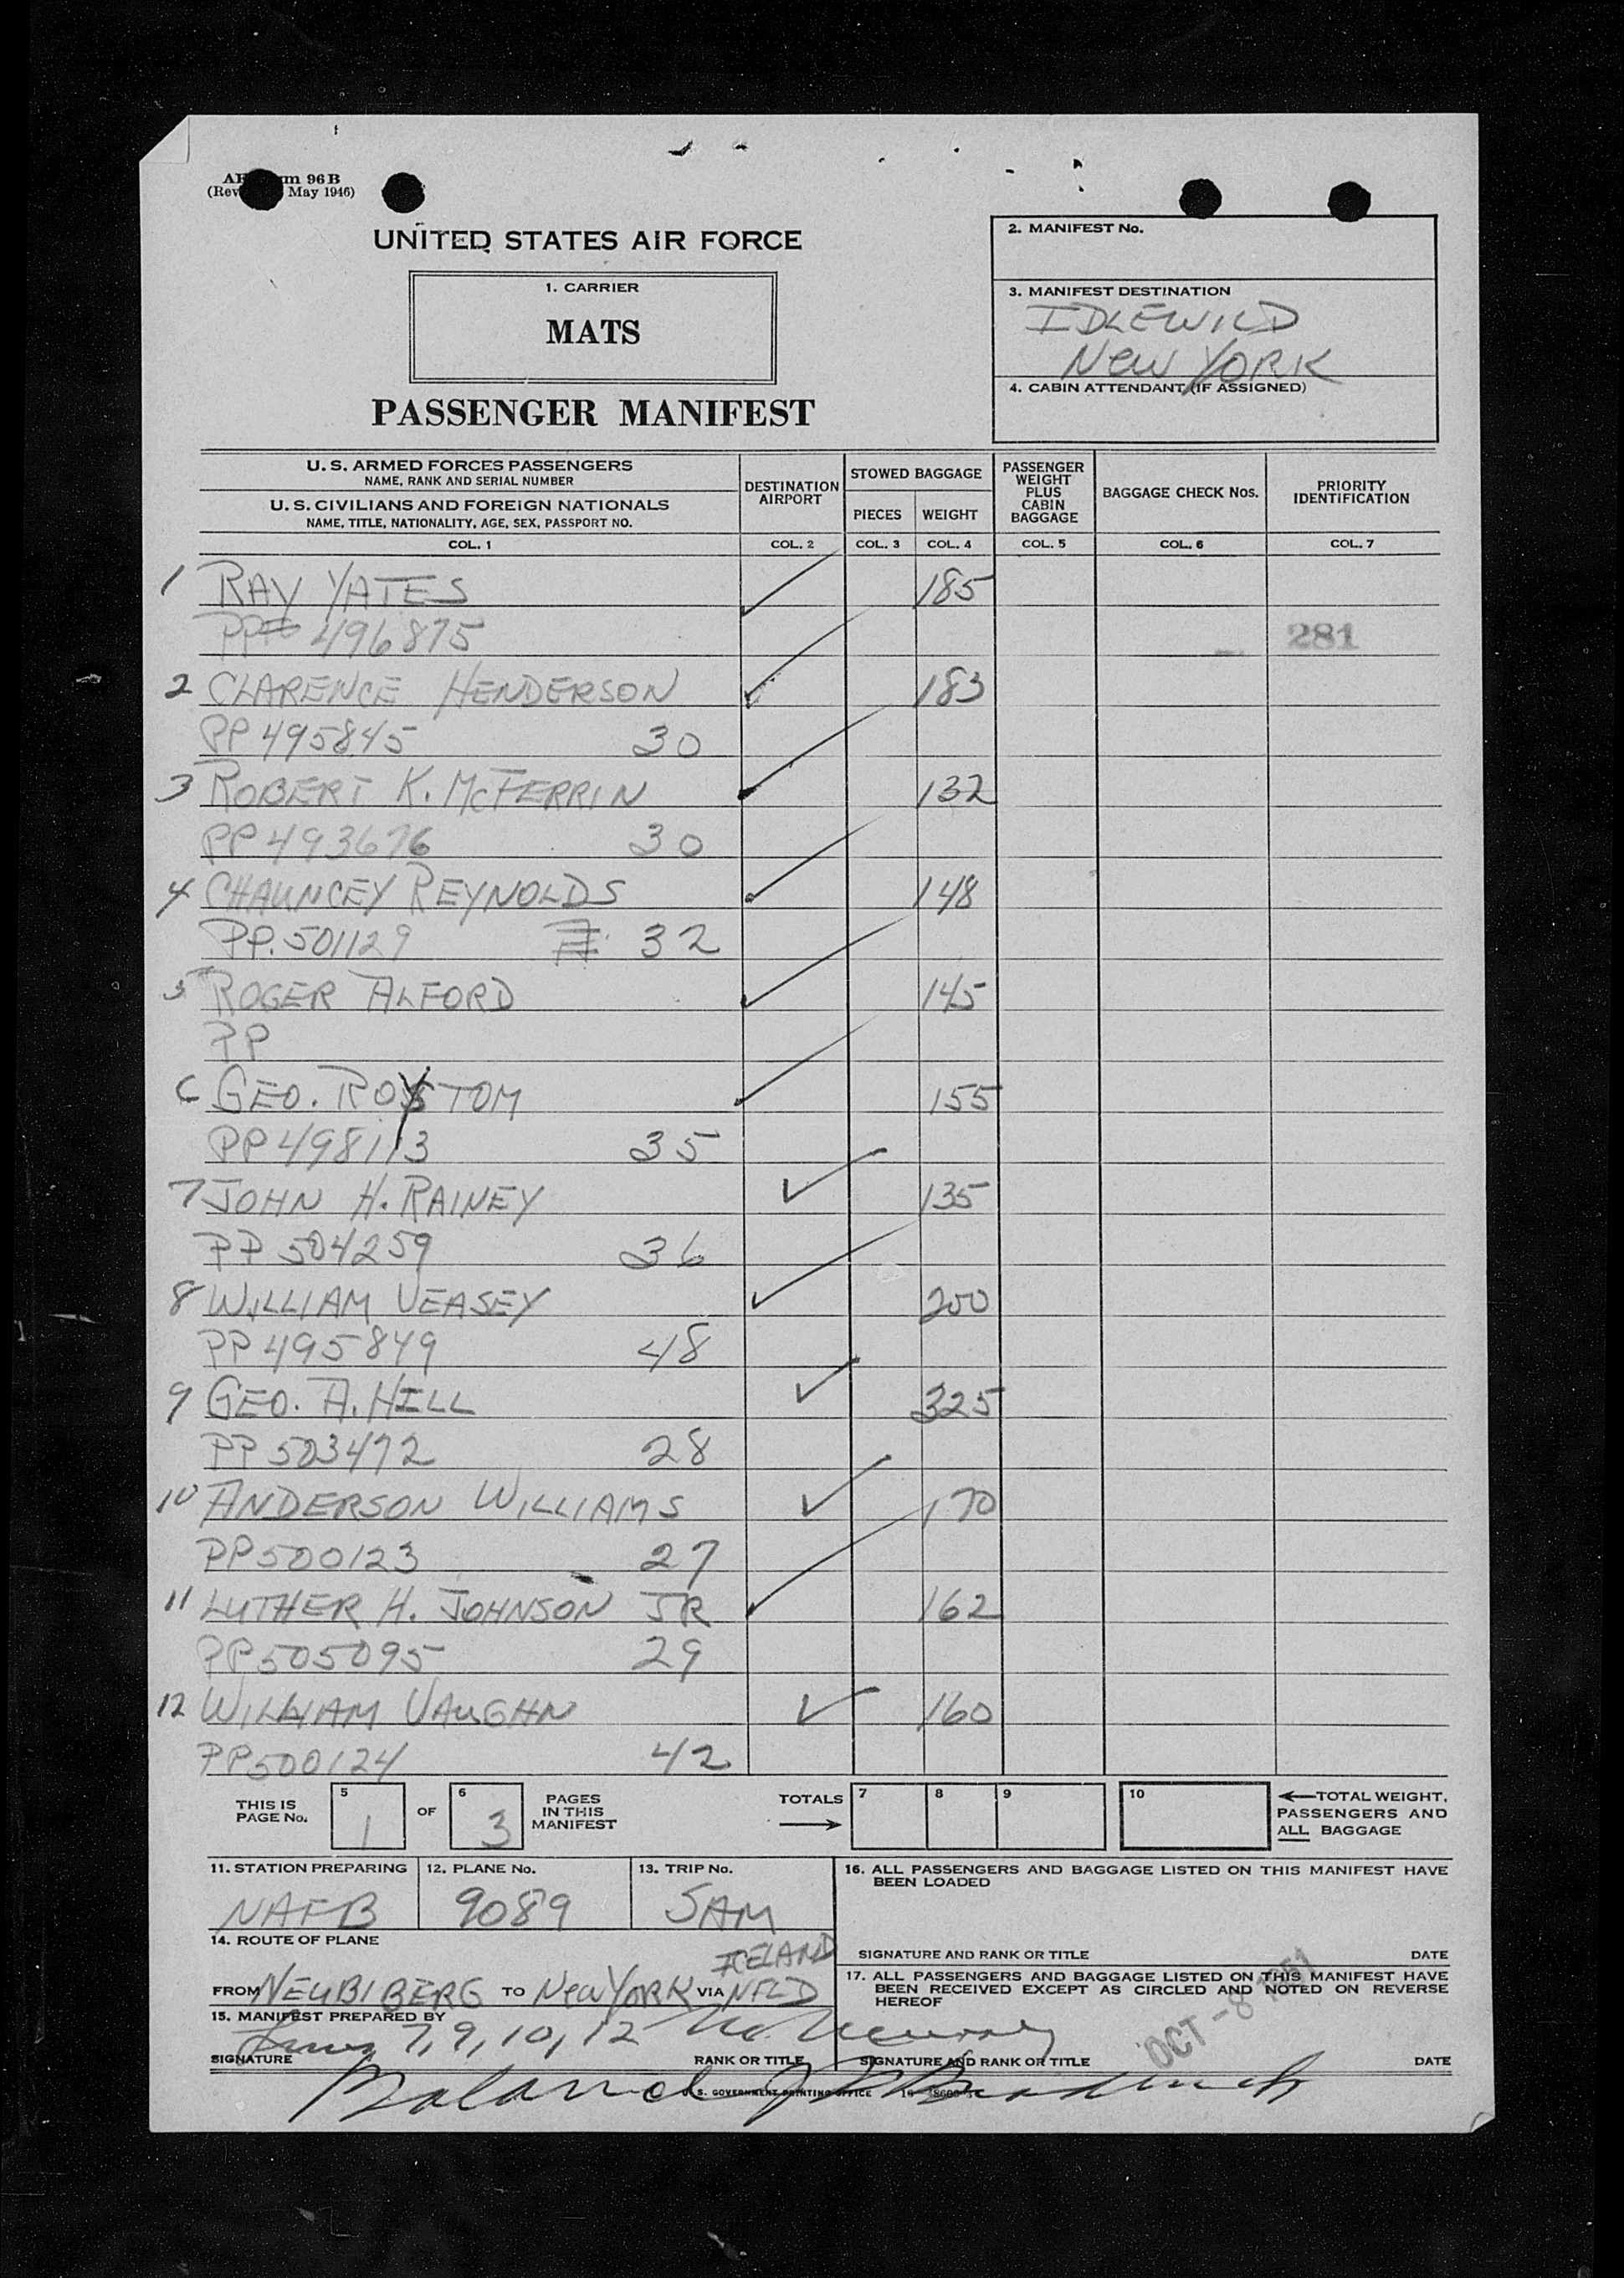 96 B
May 1946)
UNITED STATES AIR FORCE
1. CARRIER
MATS
PASSENGER MANIFEST
2. MANIFEST No.
3. MANIFEST DESTINATION
IDLEWILD
NEW YORK
4. CABIN ATTENDANT (IF ASSIGNED)
U. S. ARMED FORCES PASSENGERS
NAME, RANK AND SERIAL NUMBER
U. S. CIVILIANS AND FOREIGN NATIONALS
NAME, TITLE, NATIONALITY, AGE, SEX, PASSPORT NO.
DESTINATION AIRPORT
STOWED BAGGAGE
PIECES WEIGHT
PASSENGER WEIGHT PLUS CABIN BAGGAGE
BAGGAGE CHECK Nos.
PRIORITY IDENTIFICATION
COL. 1 COL. 2 COL. 3 COL. 4 COL. 5 COL. 6 COL. 7
1 RAY YATES 185
496875 281
2 CLARENCE HENDERSON 183
PP 495845 30
3 ROBERT K. McFERRIN 132
PP 493676 30
4 CHAUNCEY REYNOLDS 148
PP. 501129 32
5 ROGER ALFORD 145
PP
6 GEO. ROYSTOM 155
PP 498113 35
7 JOHN H. RAINEY 135
PP 504259 36
8 WILLIAM VEASEY 200
PP 495849 48
9 GEO. A. HILL 325
PP 503472 28
10 ANDERSON WILLIAMS 170
PP 500123 27
11 LUTHER H. JOHNSON JR 162
PP 505095 29
12 WILLIAM VAUGHN 160
PP 500124 42
THIS IS PAGE No. 5 1 OF 6 3 PAGES IN THIS MANIFEST
TOTALS 7 8 9 10
TOTAL WEIGHT, PASSENGERS AND ALL BAGGAGE
11. STATION PREPARING 12. PLANE No. 13. TRIP No.
NAFB 9089 SAM
14. ROUTE OF PLANE
ICELAND
FROM NEUBIBERG TO NEW YORK VIA NFLD
15. MANIFEST PREPARED BY
7, 9, 10, 12
SIGNATURE RANK OR TITLE
16. ALL PASSENGERS AND BAGGAGE LISTED ON THIS MANIFEST HAVE
BEEN LOADED
SIGNATURE AND RANK OR TITLE DATE
17. ALL PASSENGERS AND BAGGAGE LISTED ON THIS MANIFEST HAVE
BEEN RECEIVED EXCEPT AS CIRCLED AND NOTED ON REVERSE
HEREOF
OCT -8 1951
SIGNATURE AND RANK OR TITLE DATE
U. S. GOVERNMENT PRINTING OFFICE